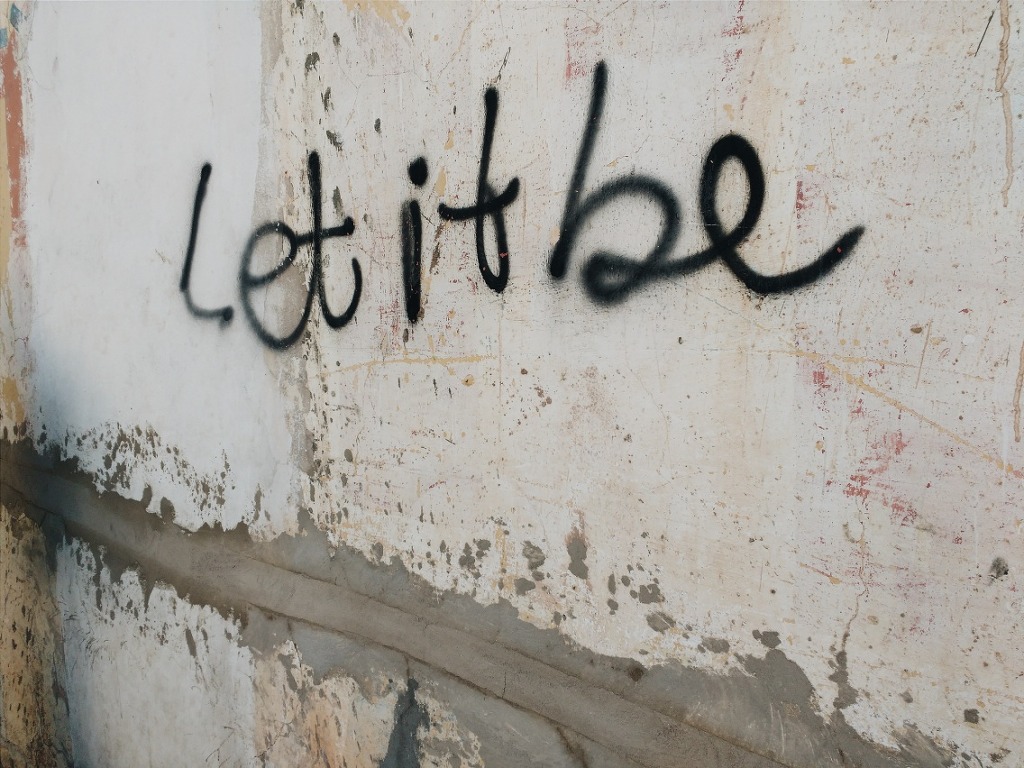 Let it be